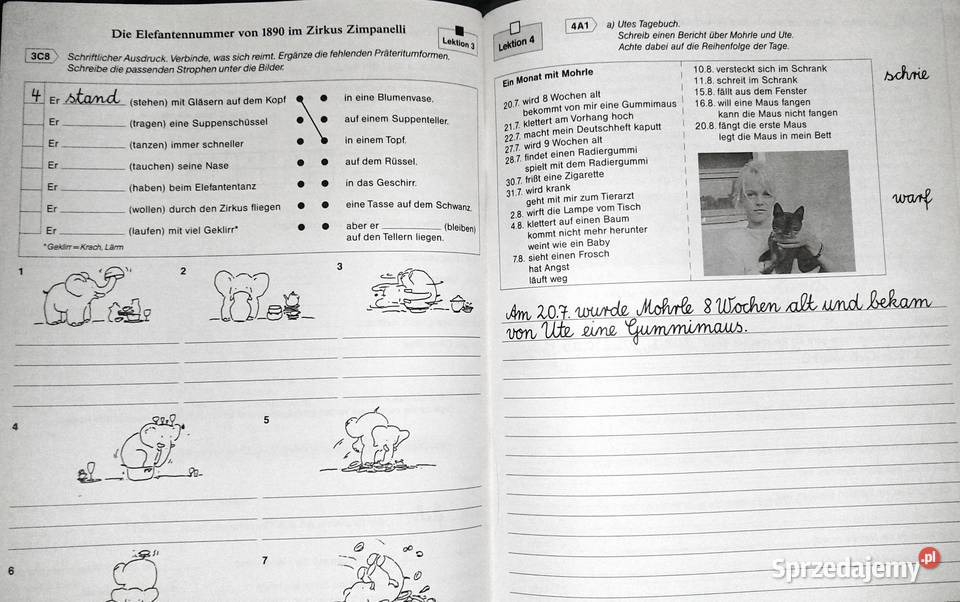 Die Elefantennummer von 1890 im Zirkus Zimpanelli
Lektion 3
3C8
Schriftlicher Ausdruck. Verbinde, was sich reimt. Ergänze die fehlenden Präteritumformen.
Schreibe die passenden Strophen unter die Bilder.
4 Er stand (stehen) mit Gläsern auf dem Kopf in eine Blumenvase.
Er ____ (tragen) eine Suppenschüssel auf einem Suppenteller.
Er ____ (tanzen) immer schneller in einem Topf.
Er ____ (tauchen) seine Nase auf dem Rüssel.
Er ____ (haben) beim Elefantentanz in das Geschirr.
Er ____ (wollen) durch den Zirkus fliegen eine Tasse auf dem Schwanz.
Er ____ (laufen) mit viel Geklirr* aber er ____ (bleiben)
auf den Tellern liegen.
*Geklirr = Krach, Lärm
1
2
3
4
5
6
7
Lektion 4
4A1
a) Utes Tagebuch.
Schreib einen Bericht über Mohrle und Ute.
Achte dabei auf die Reihenfolge der Tage.
Ein Monat mit Mohrle
20.7. wird 8 Wochen alt
bekommt von mir eine Gummimaus
21.7. klettert am Vorhang hoch
22.7. macht mein Deutschheft kaputt
27.7. wird 9 Wochen alt
28.7. findet einen Radiergummi
spielt mit dem Radiergummi
30.7. frißt eine Zigarette
31.7. wird krank
geht mit mir zum Tierarzt
2.8. wirft die Lampe vom Tisch
4.8. klettert auf einen Baum
kommt nicht mehr herunter
weint wie ein Baby
7.8. sieht einen Frosch
hat Angst
läuft weg
10.8. versteckt sich im Schrank
11.8. schreit im Schrank
15.8. fällt aus dem Fenster
16.8. will eine Maus fangen
kann die Maus nicht fangen
20.8. fängt die erste Maus
legt die Maus in mein Bett
schrie
warf
Am 20.7. wurde Mohrle 8 Wochen alt und bekam
von Ute eine Gummimaus.
Sprzedajemy.pl